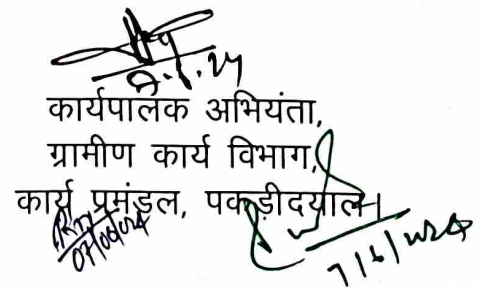 कार्यपालक अभियंता,
ग्रामीण कार्य विभाग,
कार्य प्रमंडल, पकड़ीदयाल।
07/06/024
7/6/2024